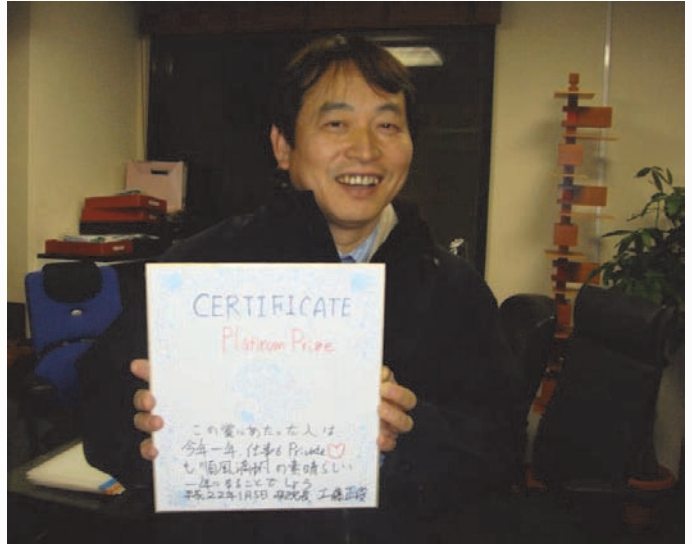 CERTIFICATE
Platinum Prize
この賞にあたった人は
今年一年、仕事も Private♡
も 順風満帆の素晴らしい
一年になることでしょう
平成22年1月5日 工藤正俊